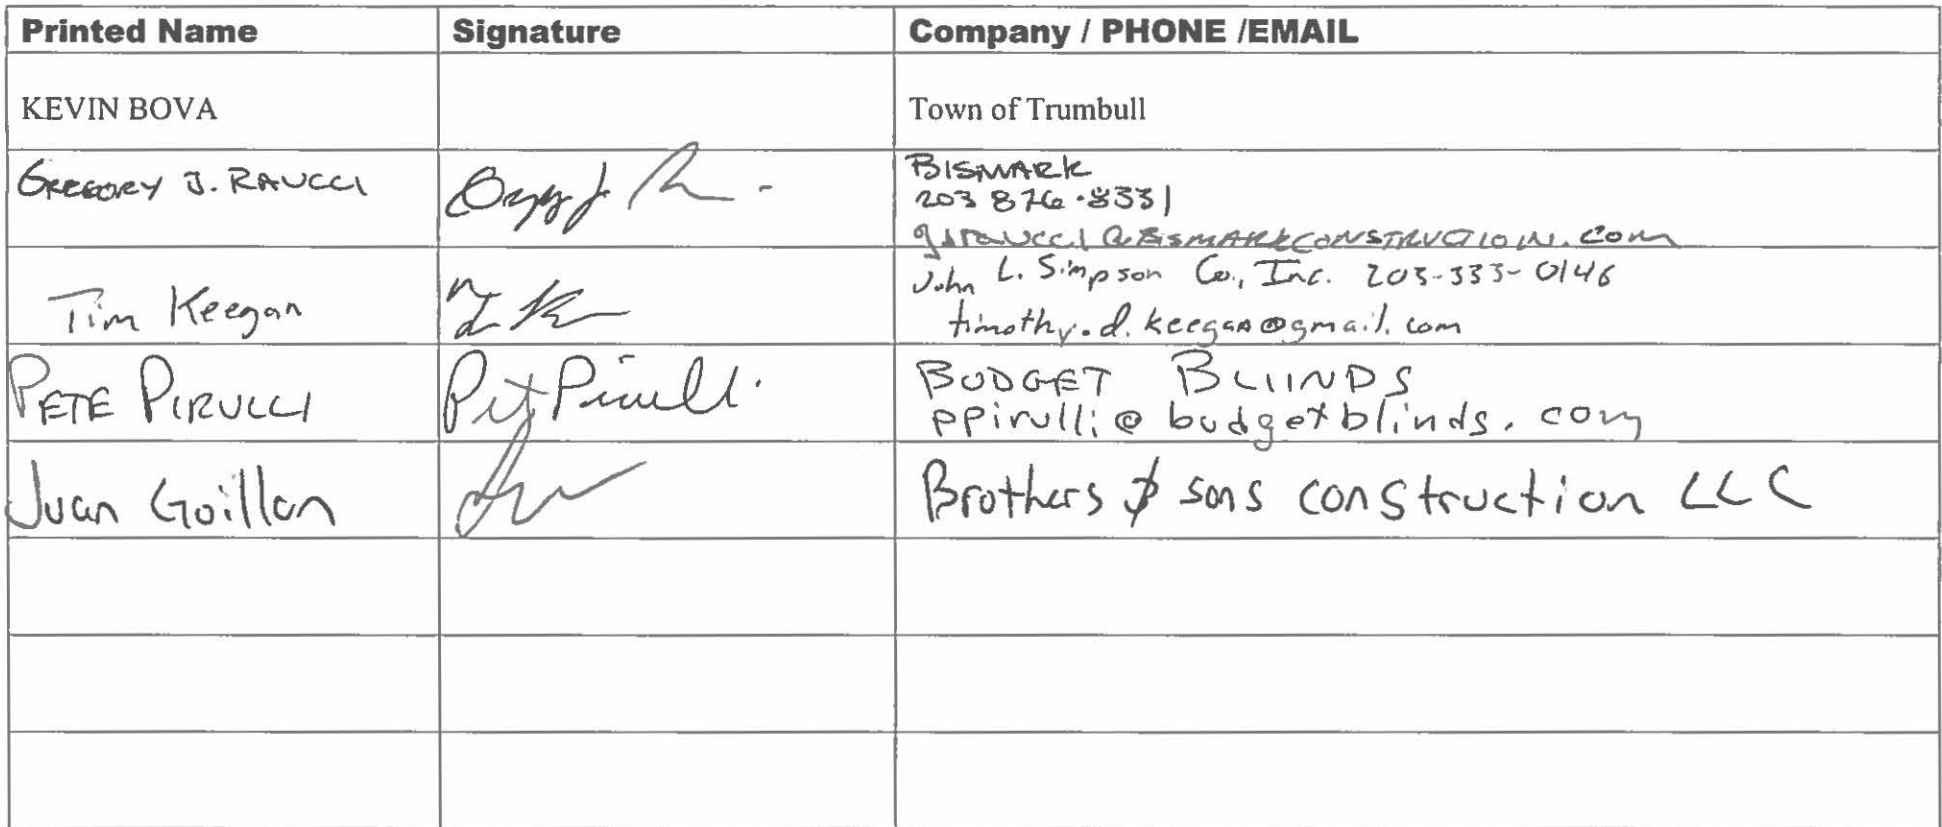 Printed Name Signature Company / PHONE /EMAIL
KEVIN BOVA Town of Trumbull
GREGORY J. RAUCCI BISMARK
203 876-8331
gjraucci@BISMARKCONSTRUCTION.com
John L. Simpson Co., Inc. 203-333-0146
Tim Keegan timothy.d.keegan@gmail.com
PETE PIRULLI Pet Pirulli BUDGET BLIINDS
ppirulli@budgetblinds.com
Juan Guillan Brothers & sons construction LLC